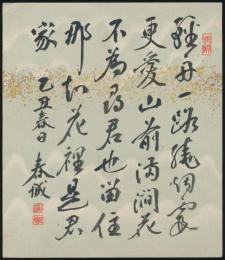 輕舟一路繞烟霞
更愛山前滿澗花
不為尋君也留住
那知花裡是君
家 乙丑春日